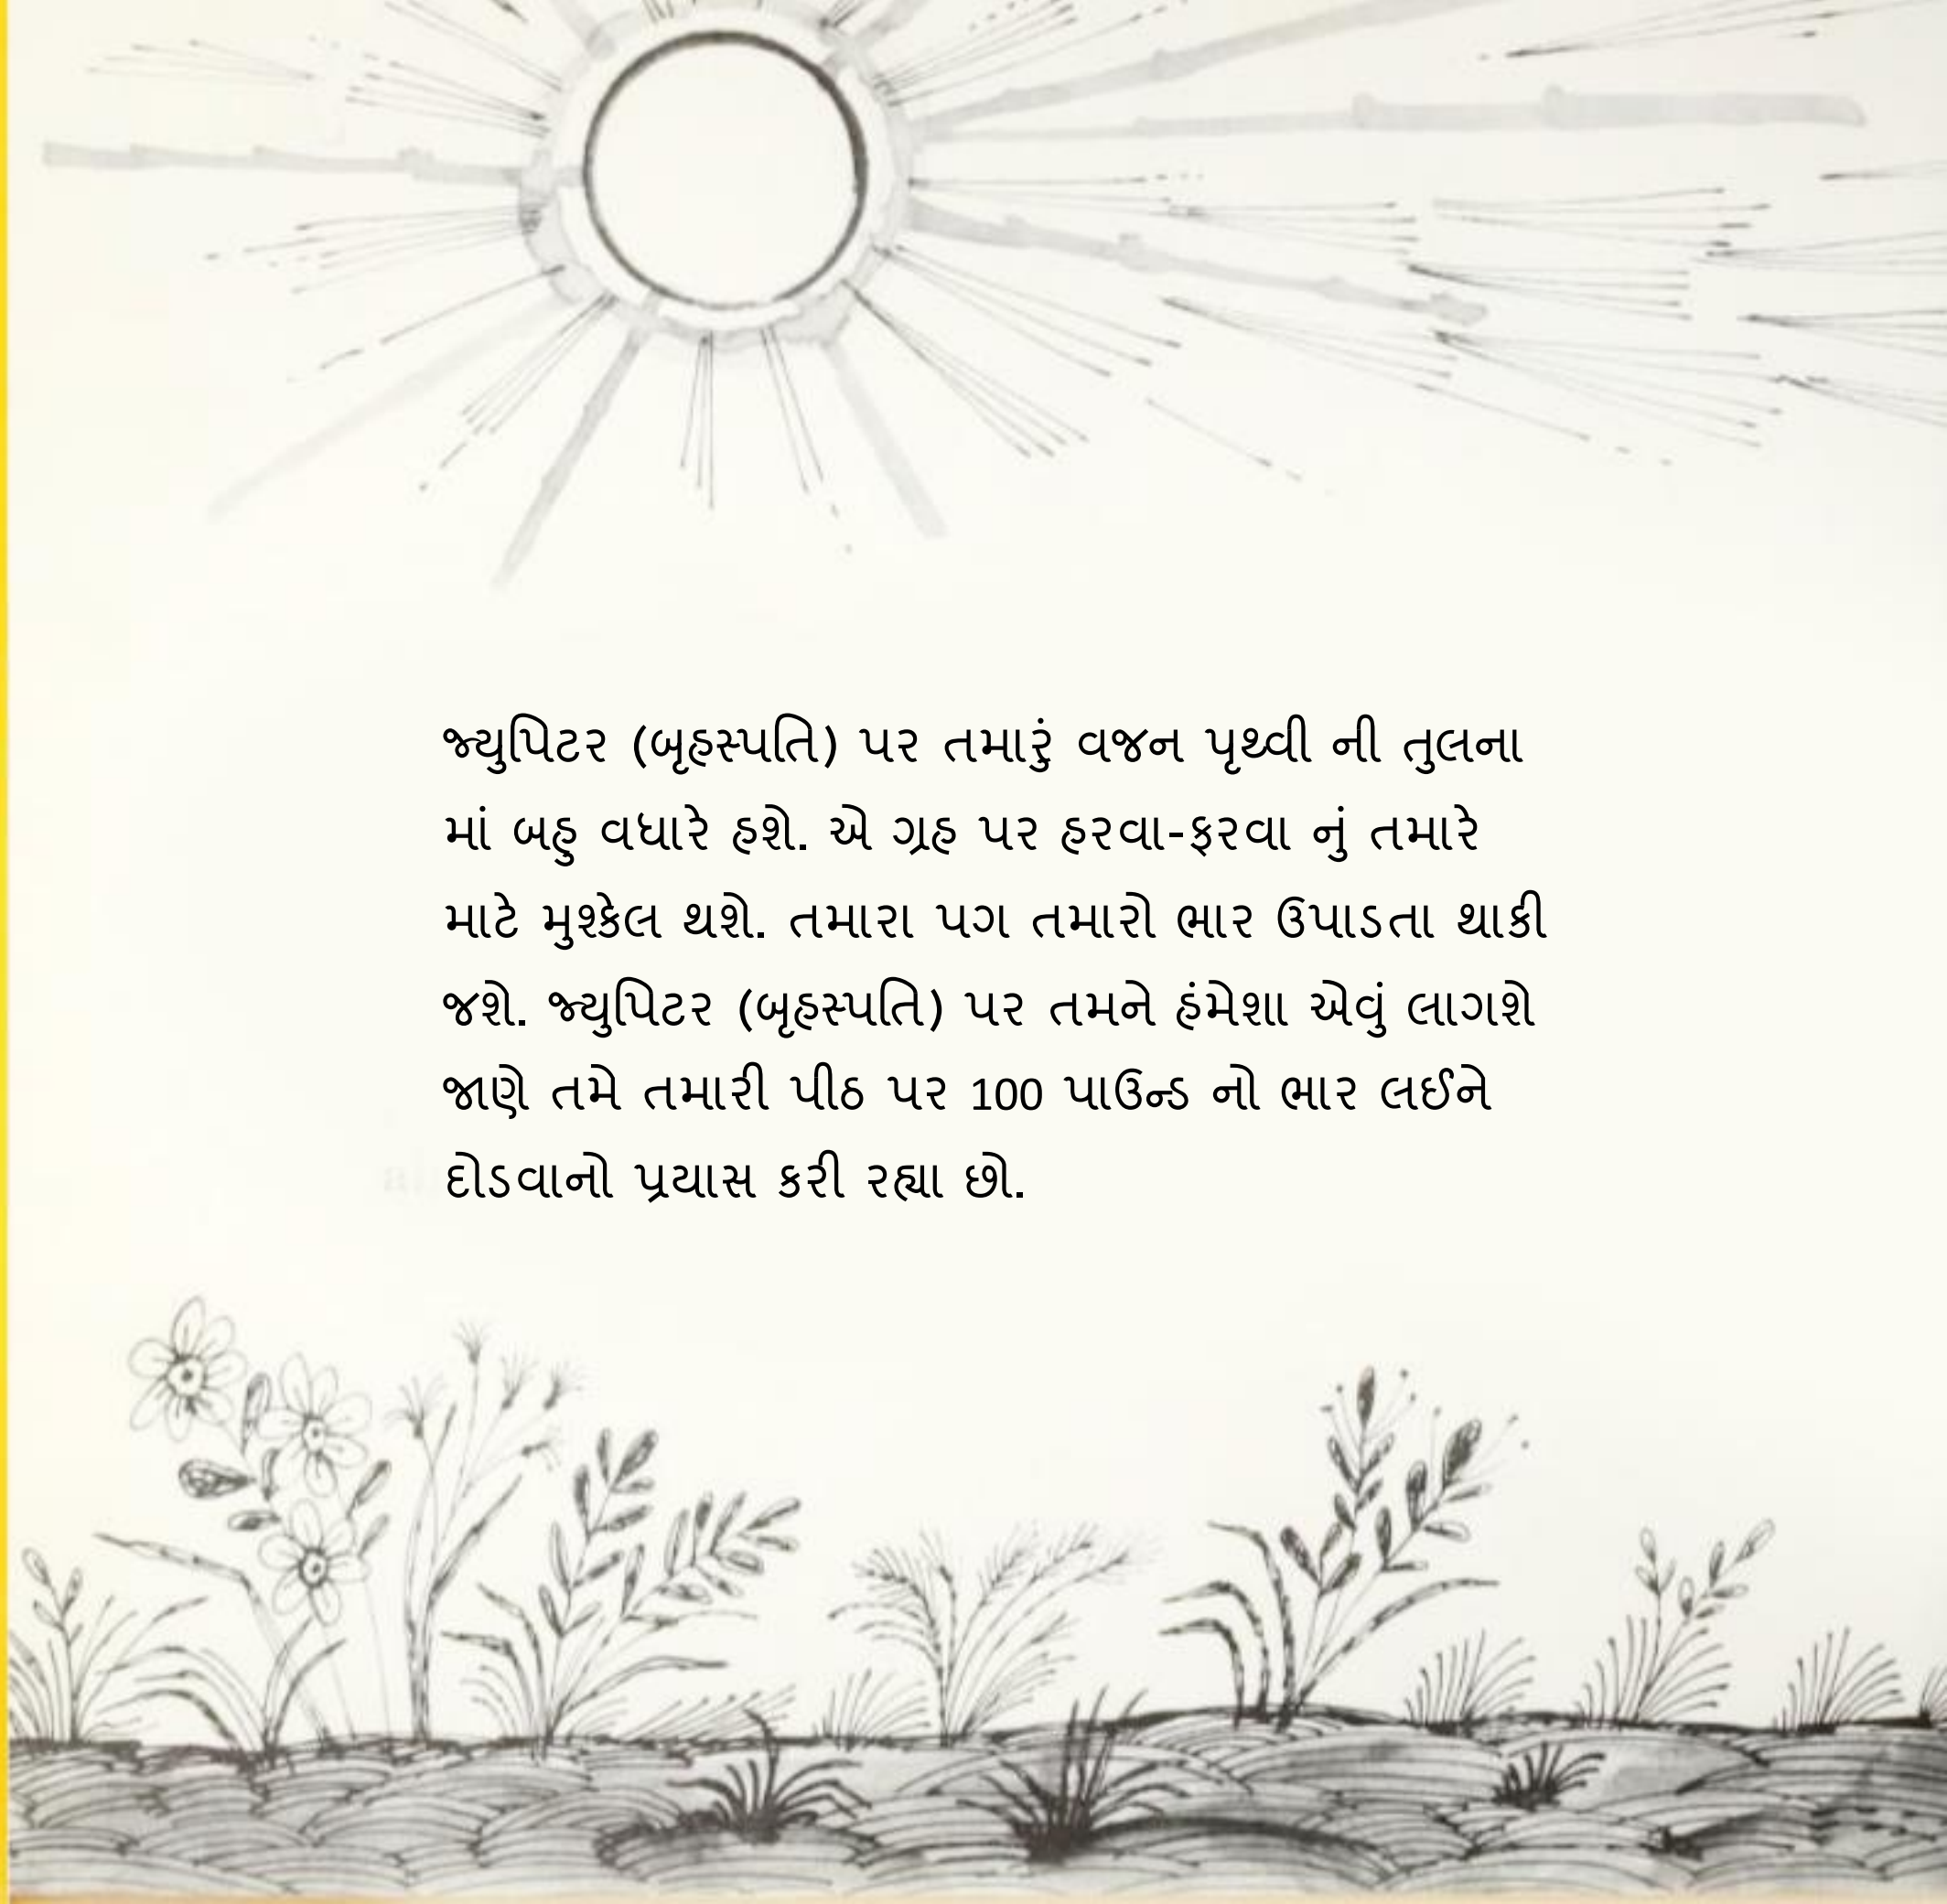 જ્યુપિટર (બૃહસ્પતિ) પર તમારું વજન પૃથ્વી ની તુલના
માં બહુ વધારે હશે. એ ગ્રહ પર હરવા-ફરવા નું તમારે
માટે મુશ્કેલ થશે. તમારા પગ તમારો ભાર ઉપાડતા થાકી
જશે. જ્યુપિટર (બૃહસ્પતિ) પર તમને હંમેશા એવું લાગશે
જાણે તમે તમારી પીઠ પર 100 પાઉન્ડ નો ભાર લઈને
દોડવાનો પ્રયાસ કરી રહ્યા છો.